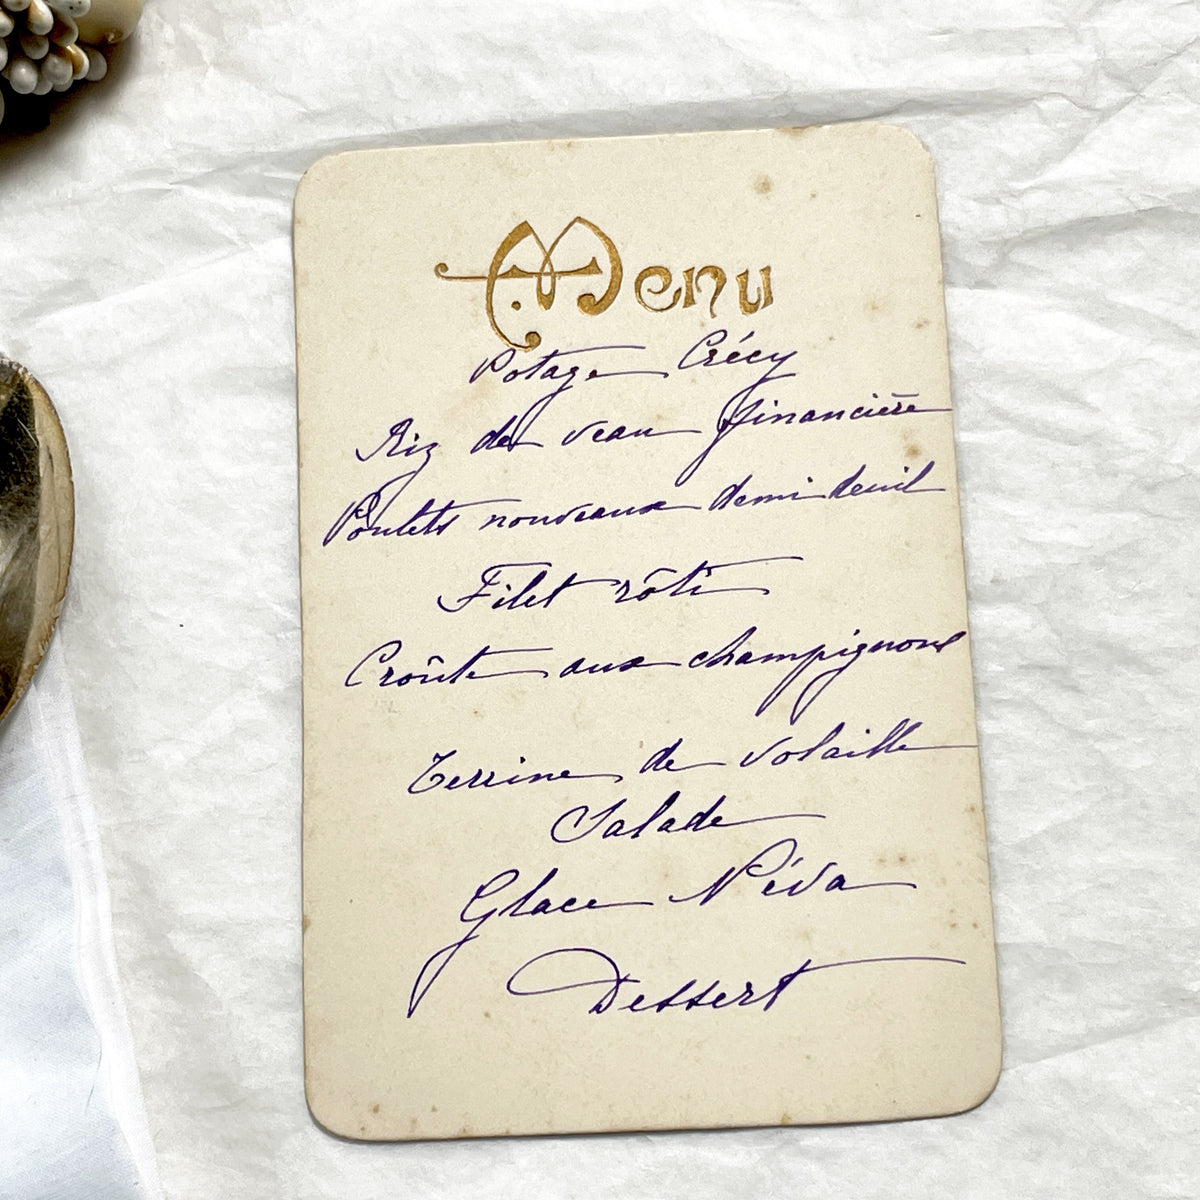 Menu
Potage Crécy
Riz de veau financière
Poulets nouveaux demi deuil
Filet rôti
Croûte aux champignons
Terrine de volaille
Salade
Glace Néva
Dessert